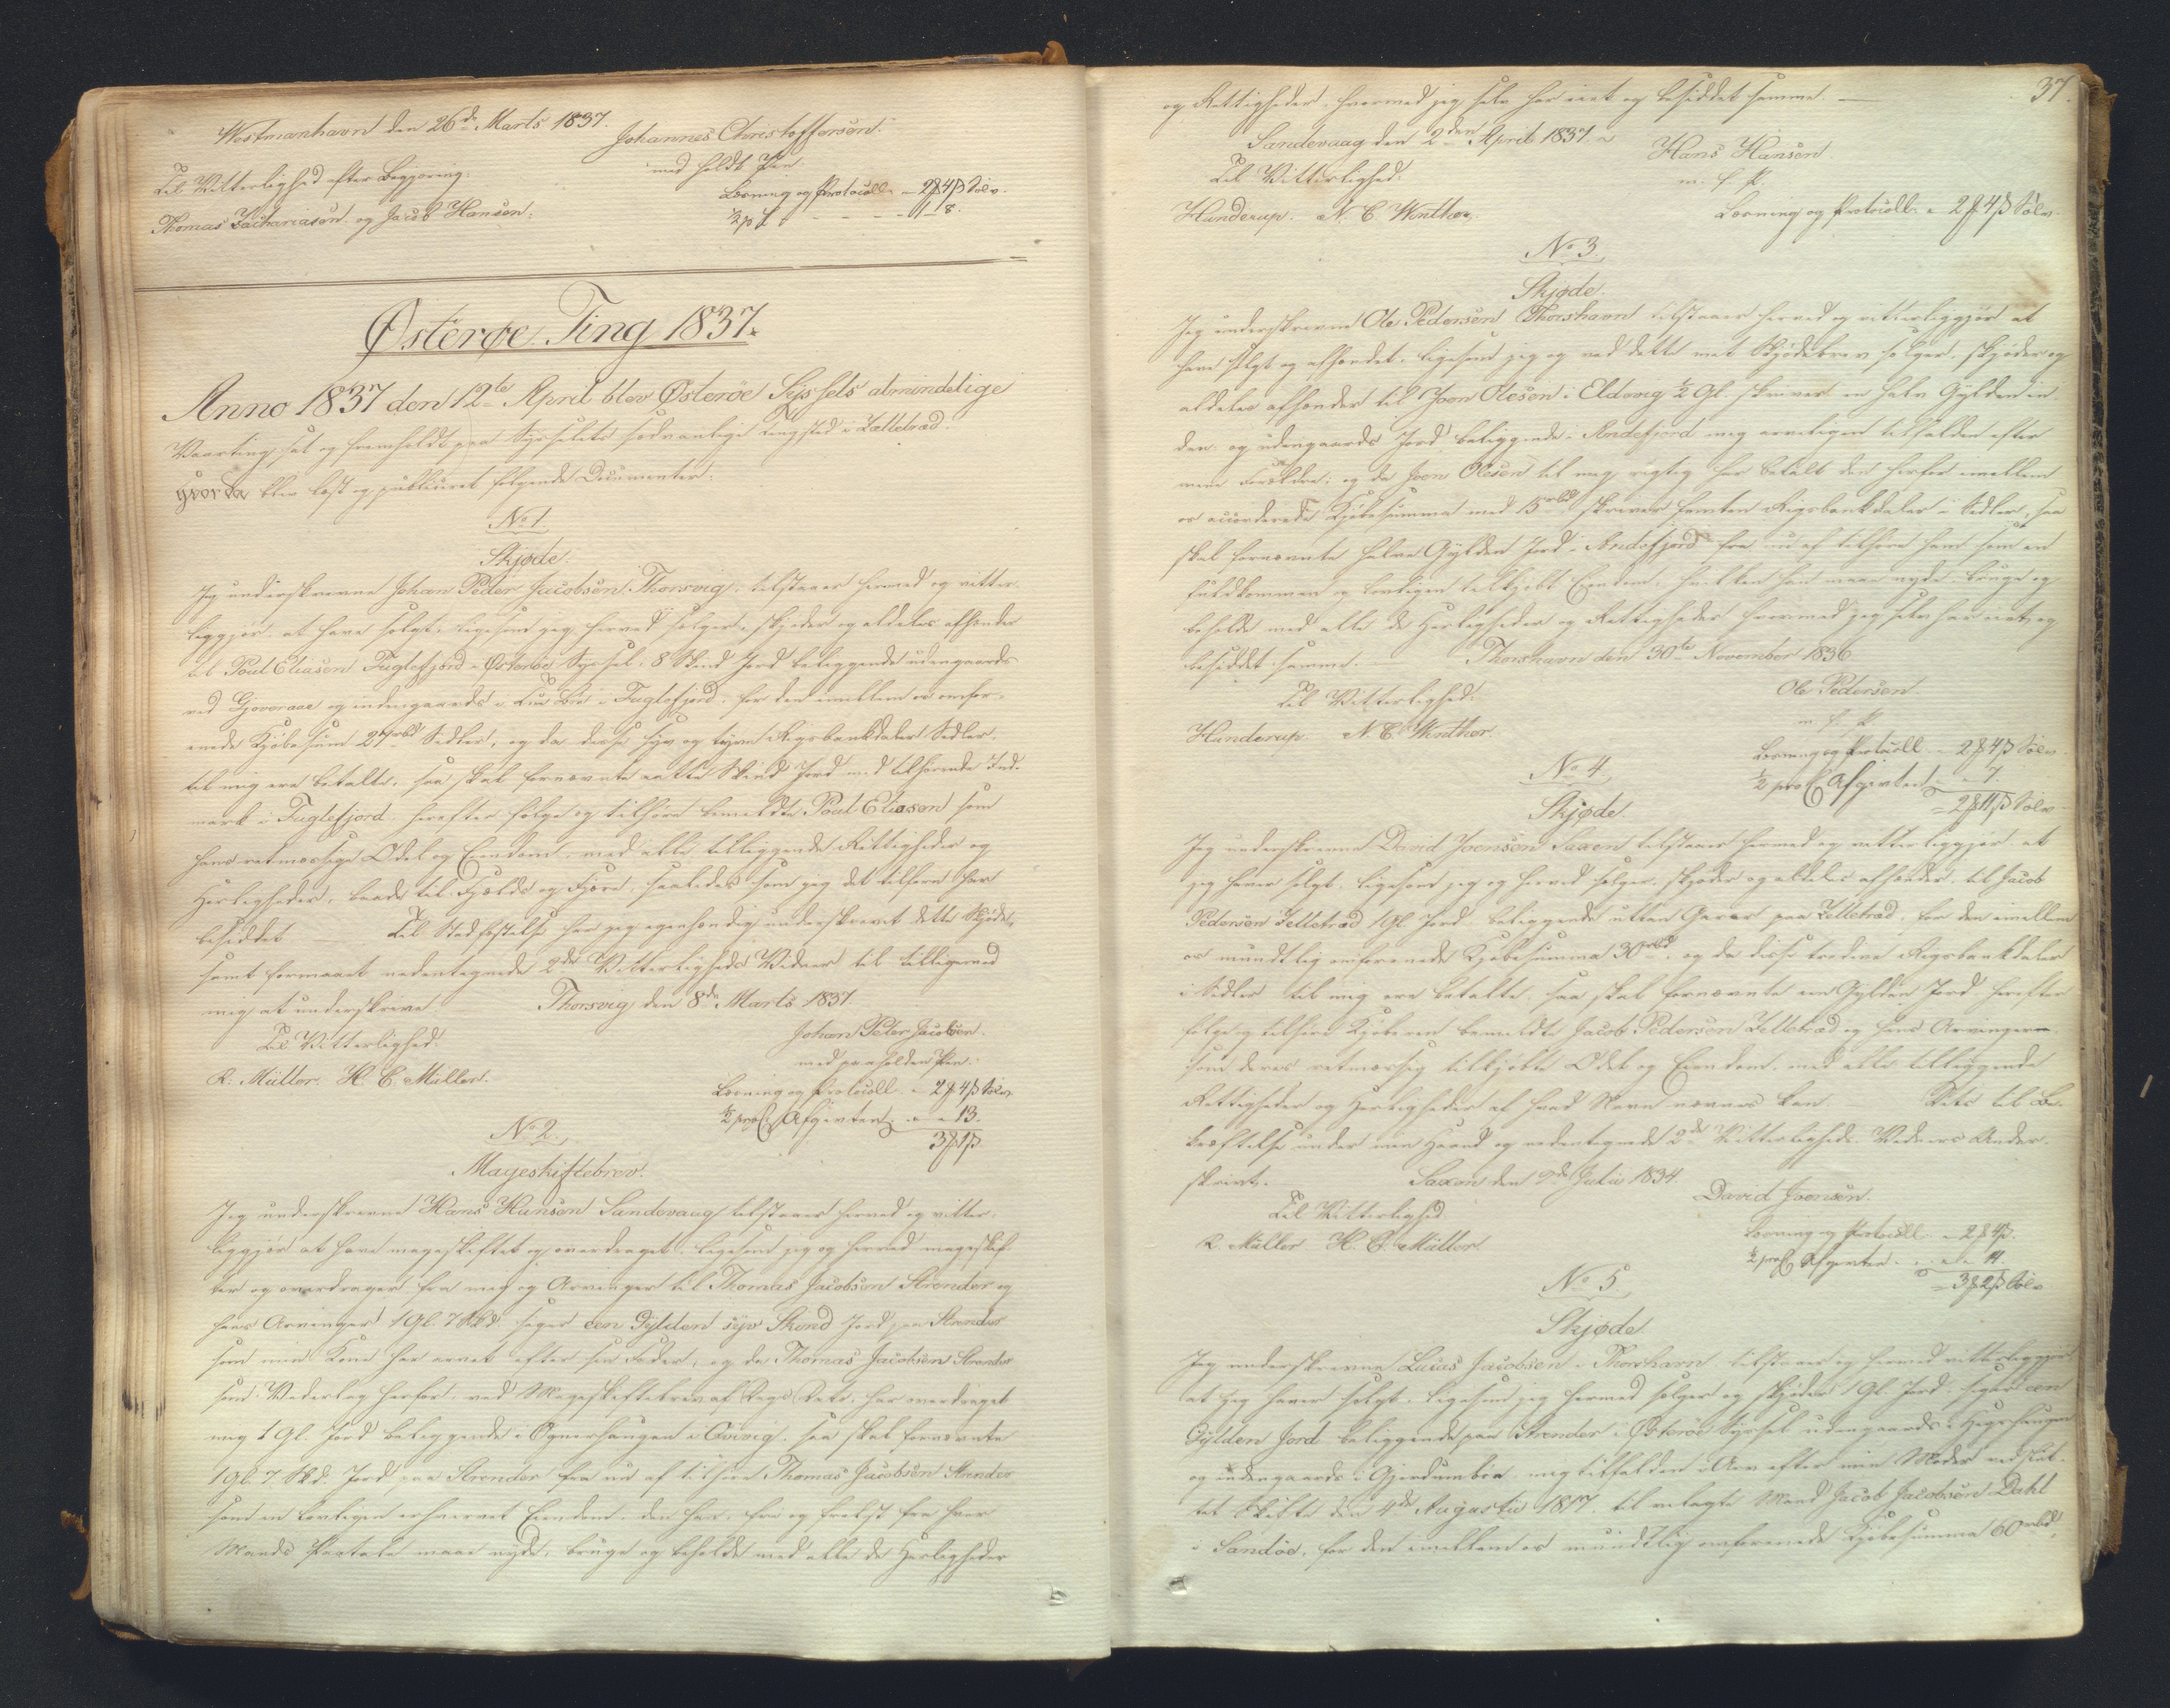 Westmanhavn den 26de Marts 1837.
Johannes Christoffersen.
med holdt Pen
Til Vitterlighed efter Begjæring:
Thomas Zachariasen og Jacob Hansen.
Læsning og Protocoll. - 2 4 Sølv.
1/2 p C - - - - 1 8.
Østerøe Ting 1837.
Anno 1837 den 12te April blev Østerøe Syssels almindelige
Vaarting sat og fremholdt paa Sysselets sædvanlige Tingsted i Zelletræd.
Hvorda blev læst og publiceret følgende Documenter:
No 1.
Skjøde.
Jeg underskrevne Johan Peder Jacobsen Thorsvig, tilstaaer hermed og vitter-
liggjør, at have solgt, ligesom jeg herved sælger, skjøder og aldeles afhænder
til Poul Eliasen Fuglefjord i Østerøe Syssel, 8 Skind Jord beliggende udengaards
ved Gjoveraae og indengaards i Bøe i Fuglefjord, for den imellem os omfor-
enede Kjøbesum 27 rbd Sedler, og da disse syv og tyve Rigsbankdaler Sedler
til mig ere betalte, saa skal fornævnte aatte Skind Jord med tilhørende Ind-
mark i Fuglefjord herefter følge og tilhøre bemeldte Poul Eliasen som
hans retmæssige Odel og Eiendom, med alle tilliggende Rettigheder og
Herligheder, baade til Fjelds og Fjære, saaledes som jeg det tilforn har
besiddet. — Til Stadfæstelse har jeg egenhændig underskrevet dette Skjøde,
samt formaaet nedentegnede 2de Vitterligheds Vidner til tilligemed
mig at underskrive. Thorsvig den 8de Marts 1837.
Til Vitterlighed:
Johan Peter Jacobsen.
med paaholden Pen.
R. Müller. H. C. Müller.
Læsning og Protocoll. - 2 4 Sølv
1/2 proC Afgivten - - 13.
3 1
No 2.
Mageskiftebrev.
Jeg underskrevne Hans Hansen Sandevaag tilstaaer herved og vitter-
liggjør at have mageskiftet og overdraget, ligesom jeg og herved mageskif-
ter og overdrager fra mig og Arvinger til Thomas Jacobsen Strender og
hans Arvinger 1 Gl. 7 Skd. siger een Gylden syv Skind Jord paa Strender
som min Kone har arvet efter sin Fader, og da Thomas Jacobsen Strender
som Vederlag herfor ved Mageskiftebrev af Dags Dato, har overdraget
mig 1 Gl. Jord beliggende i Ognerhaugen i Qvivig, saa skal fornævnte
1 Gl. 7 Skd. Jord paa Strender fra nu af tilhøre Thomas Jacobsen Strender
som en lovligen erhvervet Eiendom, den han, fri og frelst fra hver
Mands Paatale maae nyde, bruge og beholde med alle de Herligheder
37.
og Rettigheder, hvormed jeg selv har eiet og besiddet samme. —
Sandevaag den 2den April 1837.
Hans Hansen
m. f. P.
Til Vitterlighed:
Hunderup. N. C. Winther.
Læsning og Protocoll. - 2 4 Sølv
No 3.
Skjøde.
Jeg underskrevne Ole Pedersen Thorshavn tilstaaer herved og vitterliggjør at
have solgt og afhændet, ligesom jeg og ved dette mit Skjødebrev sælger, skjøder og
aldeles afhænder til Joen Olesen i Eldevig 1/2 Gl. skriver en halv Gylden in-
den- og udengaards Jord beliggende i Andefjord mig arveligen tilfalden efter
mine Forældre; og da Joen Olesen til mig rigtig har betalt den herfor imellem
os accorderede Kjøbesumma med 15 rbd skriver femten Rigsbankdaler i Sedler, saa
skal fornævnte halve Gylden Jord i Andefjord fra nu af tilhøre ham som en
fuldkommen og lovligen tilkjøbt Eiendom, hvilken han maae nyde, bruge og
beholde med alle de Herligheder og Rettigheder hvormed jeg selv har eiet og
besiddet samme. — Thorshavn den 30te November 1836
Til Vitterlighed:
Ole Pedersen.
m. f. P.
Hunderup. N. C. Winther.
Læsning og Protocoll - 2 4 Sølv
1/2 proC Afgivten - - 7.
2 11 Sølv
No 4.
Skjøde.
Jeg underskrevne David Joensen Saxen tilstaaer hermed og vitterliggjør, at
jeg haver solgt, ligesom jeg og herved sælger, skjøder og aldeles afhænder, til Jacob
Pedersen Zelletræd 1 Gl. Jord beliggende utten Garer paa Zelletræd, for den imellem
os mundtlig omforenede Kjøbesumma 30 rbd, og da disse tredive Rigsbankdaler
i Sedler til mig ere betalte, saa skal fornævnte een Gylden Jord herefter
følge og tilhøre Kjøberen bemeldte Jacob Pedersen Zelletræd og hans Arvinger
som deres retmæssig tilkjøbte Odel og Eiendom, med alle tilliggende
Rettigheder og Herligheder af hvad Navn nævnes kan. — Dets til Be-
kræftelse under min Haand og nedentegnede 2de Vitterligheds Vidners Under-
skrivt. Saxen den 9de Julii 1834.
Til Vitterlighed
David Joensen.
R. Müller. H. C. Müller.
Læsning og Protocoll - 2 4
1/2 proC Afgivten - - 14.
3 2 Sølv
No 5.
Skjøde.
Jeg underskrevne Lucas Jacobsen i Thorshavn tilstaaer og hermed vitterliggjør
at jeg haver solgt, ligesom jeg hermed sælger og skjøder 1 Gl. Jord, siger een
Gylden Jord beliggende paa Strender i Østerøe Syssel udengaards i
og indengaards i mig tilfalden i Arv efter min Moder ved slut-
tet Skifte den 4de Augustii 1817. til velagte Mand Jacob Jacobsen Dahl
i Sandøe, for den imellem os mundtlig omforenede Kjøbesumma 60 rbd,